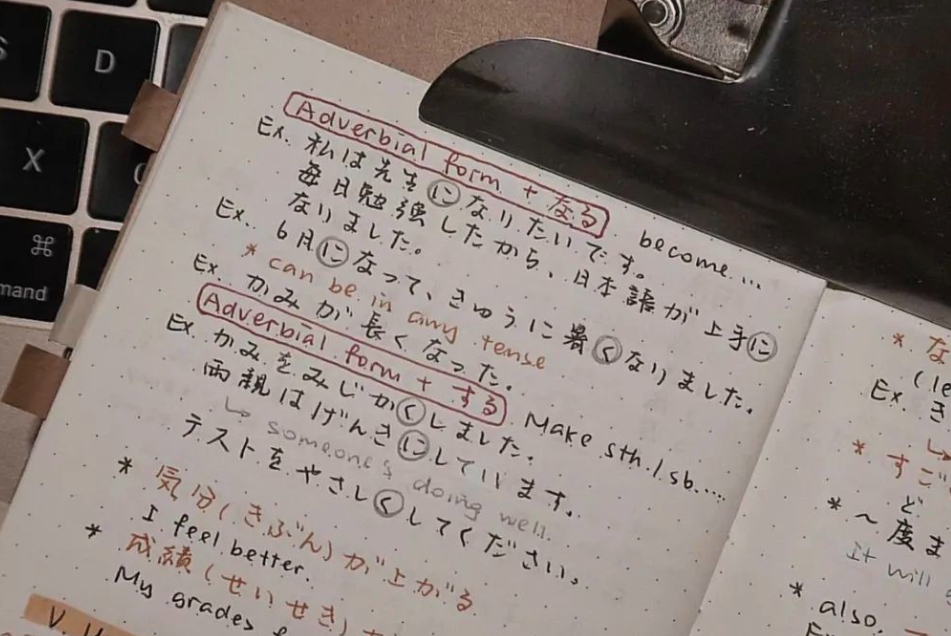 S
D
X
⌘
mand
Adverbial form + なる become...
Ex. 私は先生になりたいです。
毎日勉強したから、日本語が上手に
なりました。
Ex. 6月になって、きゅうに暑くなりました。
* can be in any tense
Ex. かみが長くなった。
Adverbial form + する Make sth./sb.....
Ex. かみをみじかくしました。
両親はげんきにしています。
↳ someone's doing well.
テストをやさしくしてください。
* 気分(きぶん)が上がる
I feel better.
* 成績(せいせき)
My grades
* な
Ex. き
* すご
ど
* ~度ま
it will
* also,